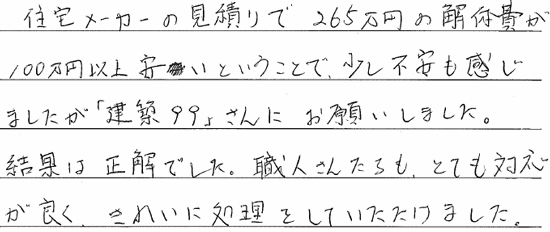 住宅メーカーの見積りで 265万円の解体費が
100万円以上安いということで、少し不安も感じ
ましたが「建築99」さんに お願いしました。
結果は正解でした。職人さんたちも、とても対応
が良く、きれいに処理をしていただけました。